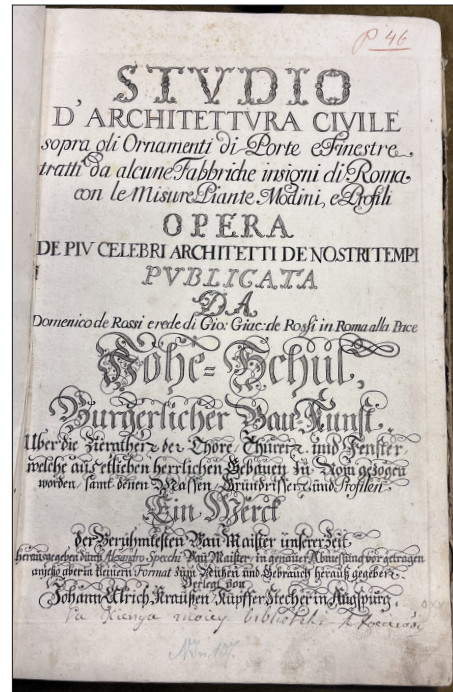 P 46
STVDIO
D'ARCHITETTVRA CIVILE
sopra gli Ornamenti di Porte e Finestre
tratti da alcune Fabbriche insigni di Roma
con le Misure Piante Modini, e Profili
OPERA
DE PIV CELEBRI ARCHITETTI DE NOSTRI TEMPI
PVBLICATA
DA
Domenico de Rossi erede di Gio: Giac: de Rossi in Roma alla Pace
Hohe=Schul,
Burgerlicher Bau-Kunst
Uber die Zierathen der Thore, Thüren und Fenster,
welche aus etlichen herrlichen Gebäuen zu Rom gezogen
worden, samt denen Massen, Grundrissen und Profilen
Ein Werck
der Berühmtesten Bau Maister unserer Zeit
herausgegeben durch Alexandro Specchi Bau Maister in genauer Abmessung vorgetragen
anjetzo aber in kleinern Format zum Nutzen und Gebrauch herauß gegeben
Verlegt von
Johann Ulrich Kraußen Kupffer Stecher in Augspurg.